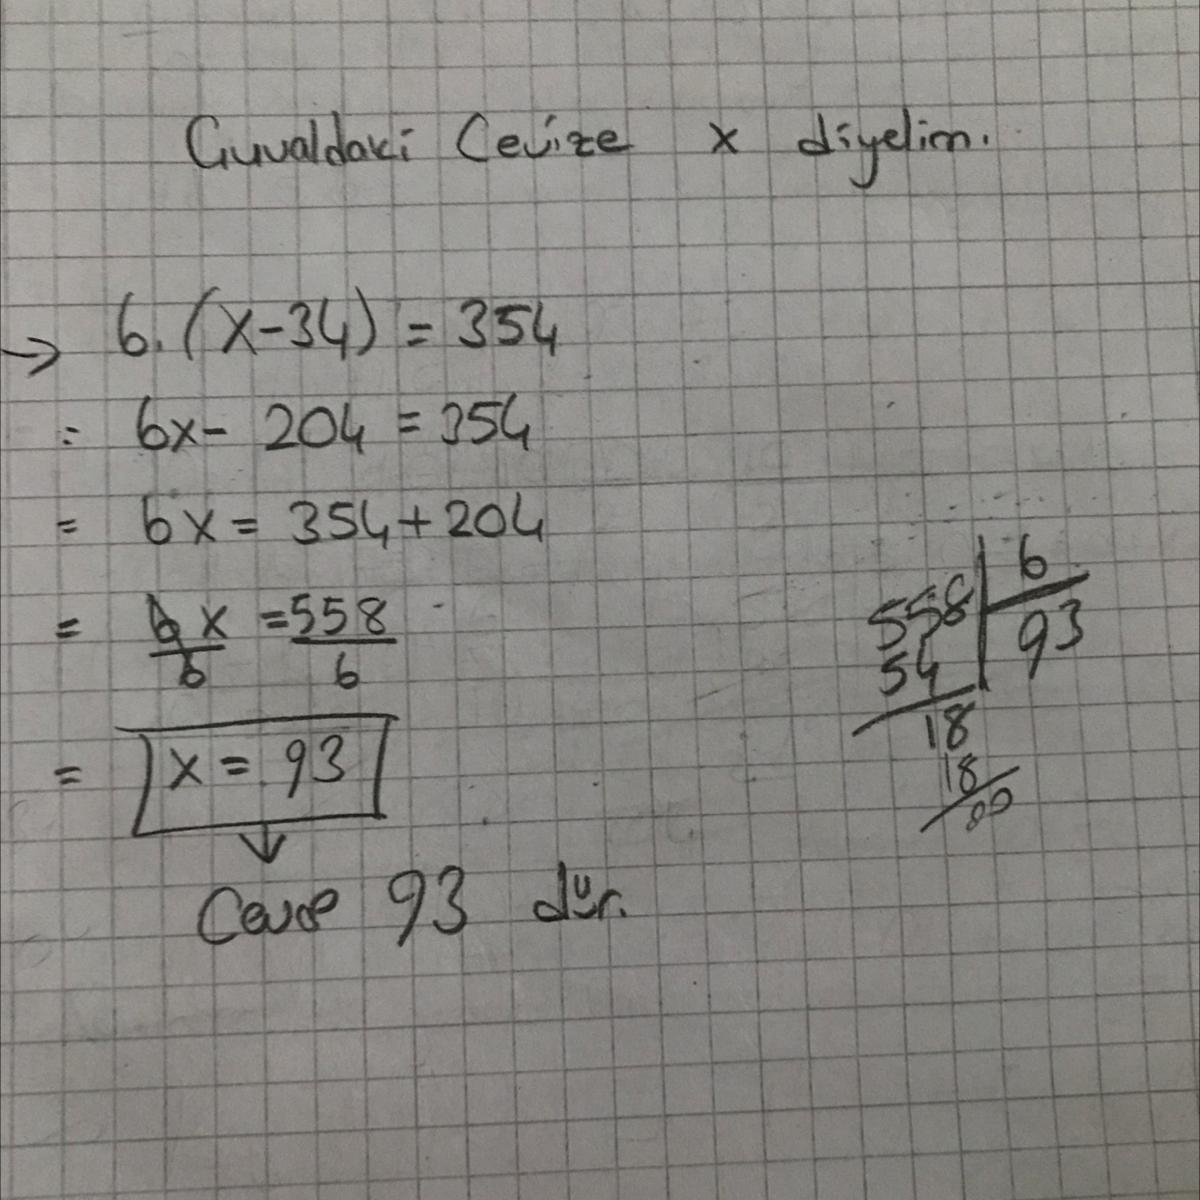 Cuvaldaki Cevize x diyelim.
→ 6.(x-34) = 354
= 6x - 204 = 354
= 6x = 354 + 204
= 6x/6 = 558/6
= x = 93
Cevap 93 dür.
558 | 6
54 | 93
18
18
00